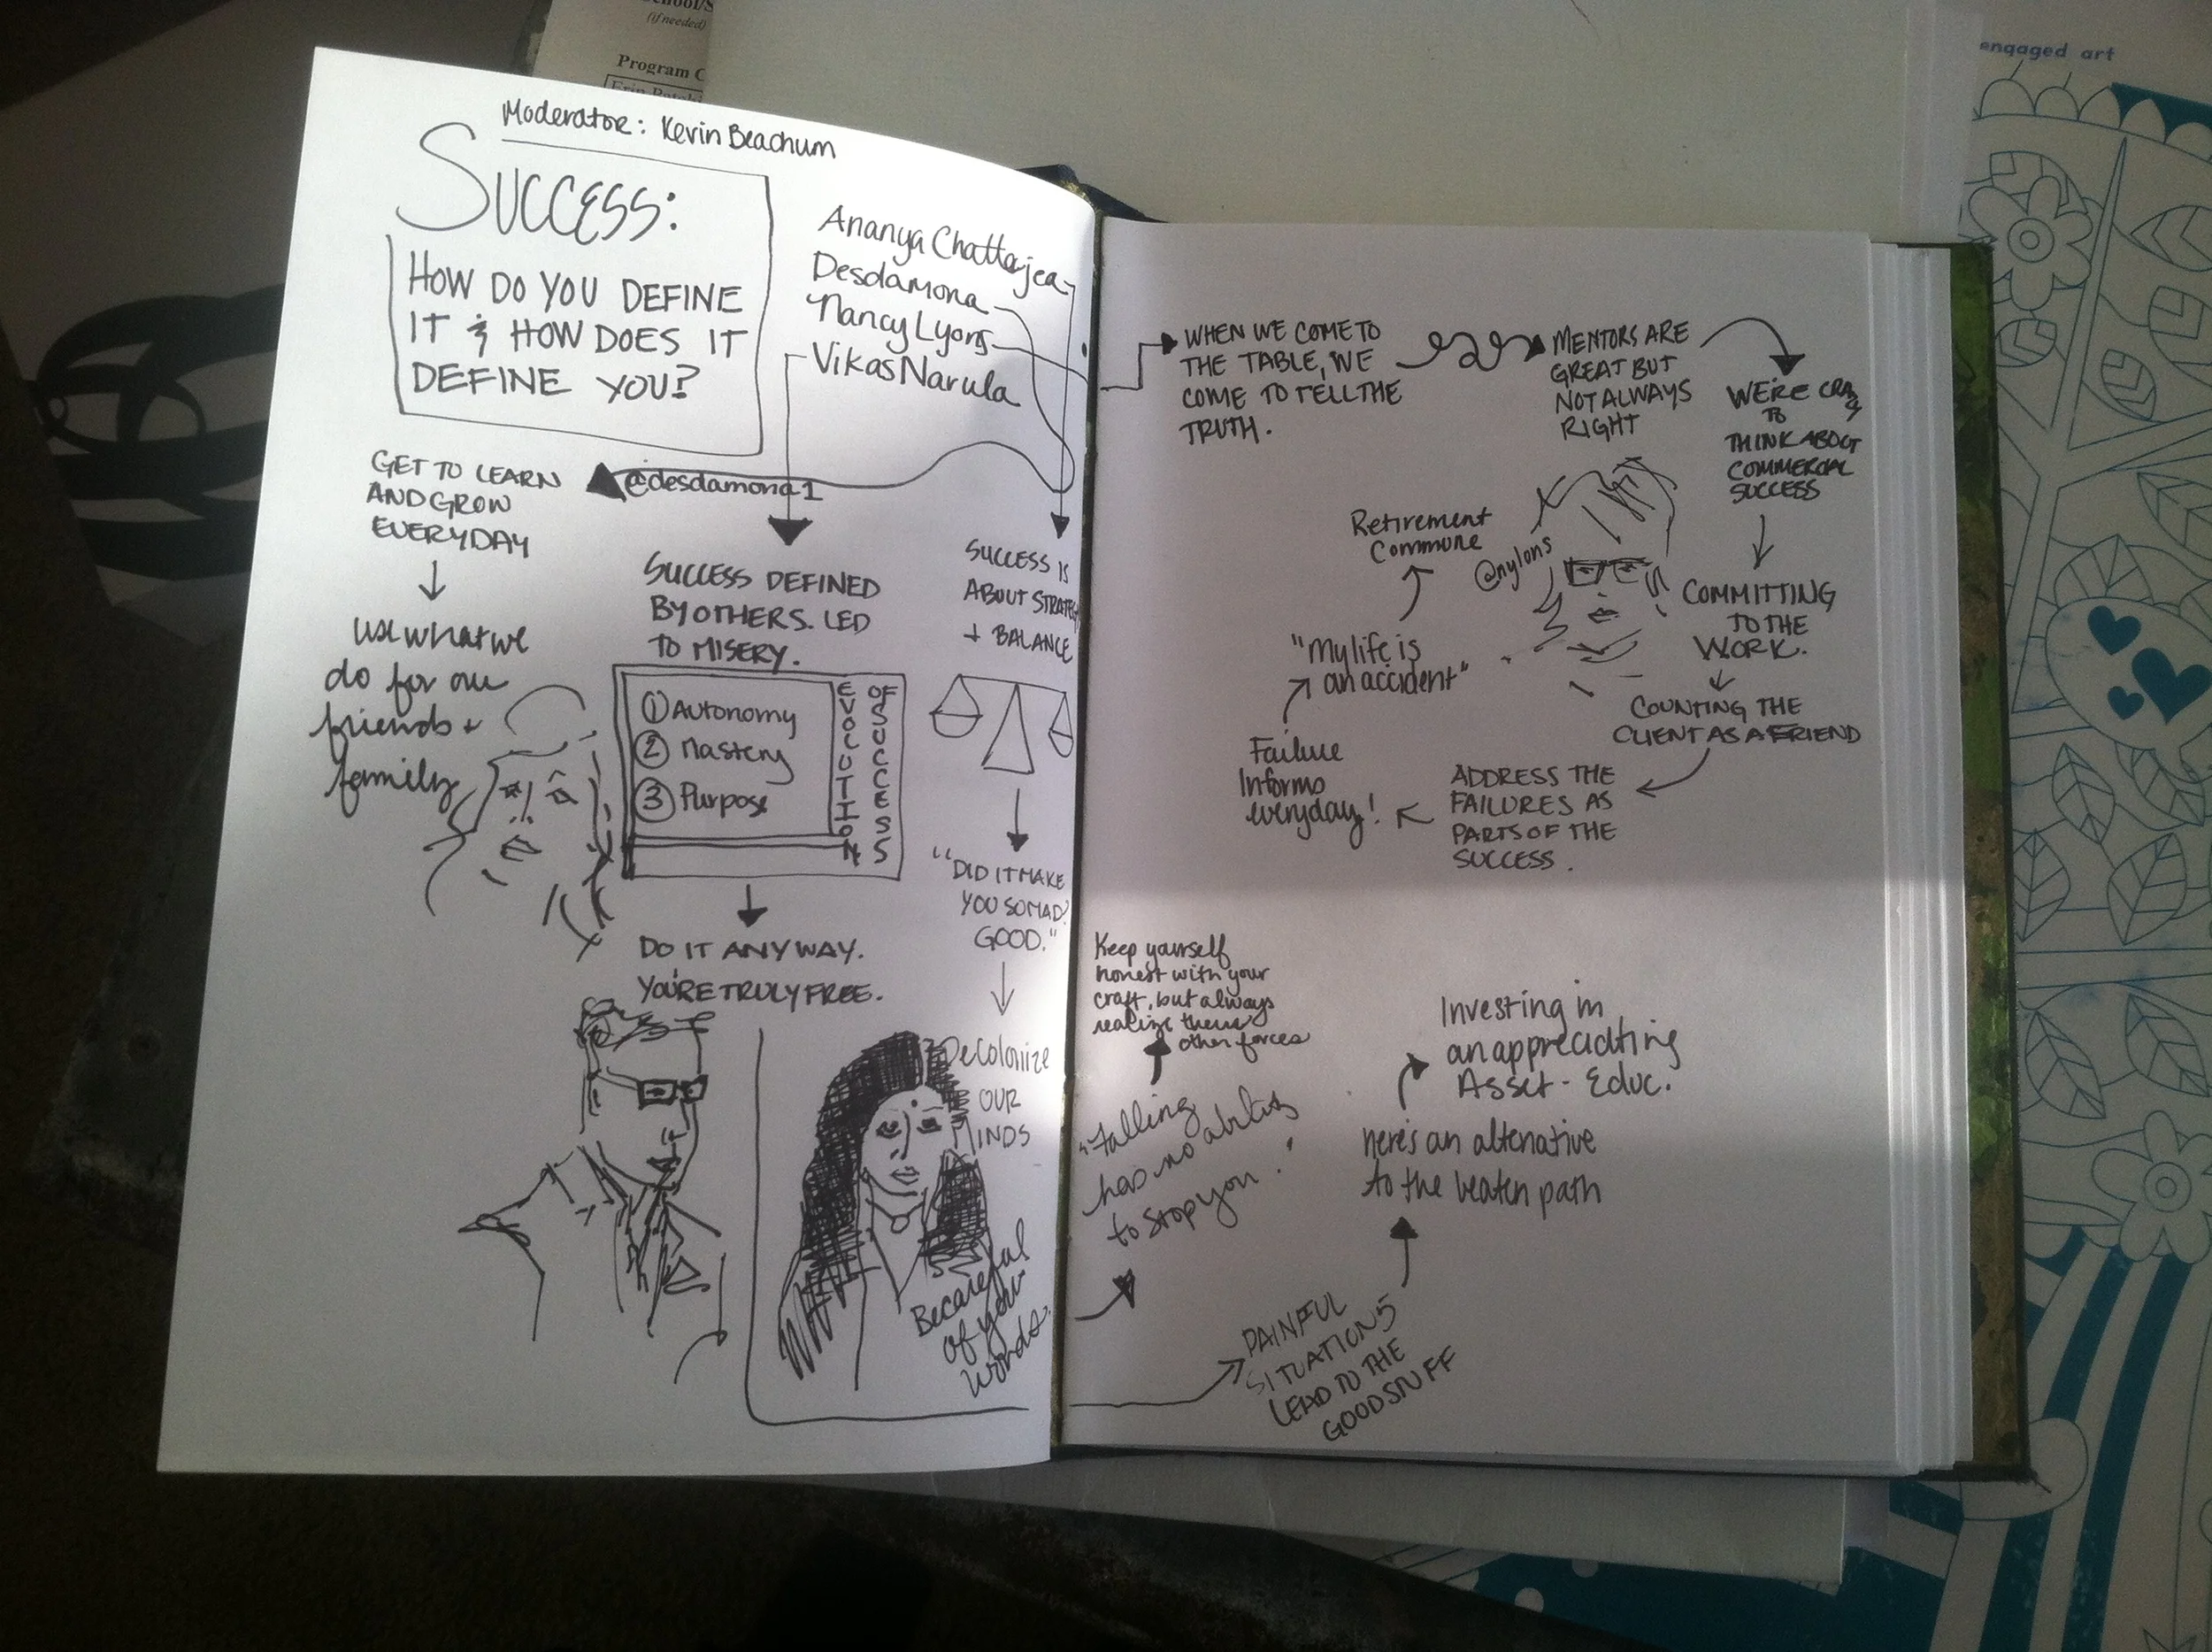 (if needed)
Program C
engaged art
Moderator: Kevin Beachum
SUCCESS:
HOW DO YOU DEFINE
IT & HOW DOES IT
DEFINE YOU?
Ananya Chatterjea
Desdamona
Nancy Lyons
Vikas Narula
GET TO LEARN
AND GROW
EVERYDAY
@desdamona1
use what we
do for our
friends +
family
SUCCESS DEFINED
BY OTHERS. LED
TO MISERY.
① Autonomy
② Mastery
③ Purpose
EVOLUTION
OF SUCCESS
DO IT ANYWAY.
YOU'RE TRULY FREE.
SUCCESS IS
ABOUT STRATEGY
+ BALANCE
"DID IT MAKE
YOU SO MAD?
GOOD."
Decolonize
OUR
MINDS
Be careful
of your
words.
WHEN WE COME TO
THE TABLE, WE
COME TO TELL THE
TRUTH.
MENTORS ARE
GREAT BUT
NOT ALWAYS
RIGHT
WE'RE CRAZY
TO
THINK ABOUT
COMMERCIAL
SUCCESS
COMMITTING
TO THE
WORK.
COUNTING THE
CLIENT AS A FRIEND
ADDRESS THE
FAILURES AS
PARTS OF THE
SUCCESS.
Failure
Informs
everyday!
"My life is
an accident"
Retirement
Commune
@nylons
Keep yourself
honest with your
craft, but always
realize there's
other forces
"Falling
has no ability
to stop you."
PAINFUL
SITUATIONS
LEAD TO THE
GOOD STUFF
here's an altenative
to the beaten path
Investing in
an appreciating
Asset - Educ.